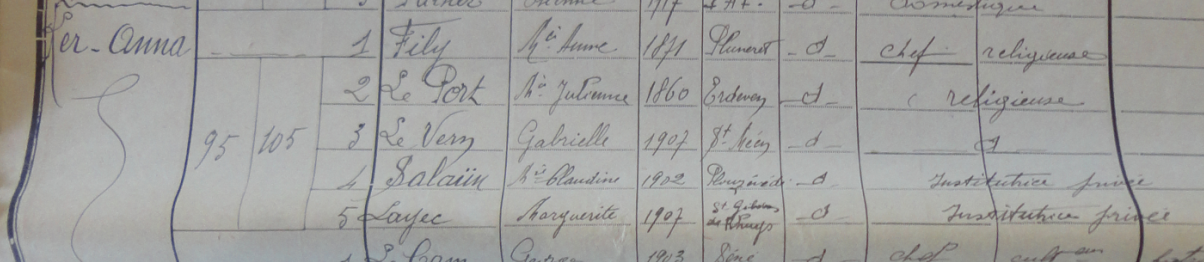 1917 d Domestique
Ker-Anna 1 Fily Mie Anne 1871 Pluneret d chef religieuse
2 Le Port Mie Julienne 1860 Erdeven d religieuse
95 105 3 Le Vern Gabrielle 1907 St Méen d d
4 Salaün Mie Claudine 1902 Plouzévédé d Institutrice privée
5 Layec Marguerite 1907 St Gildas de Rhuys d Institutrice privée
1 Le Cam 1903 Séné d chef